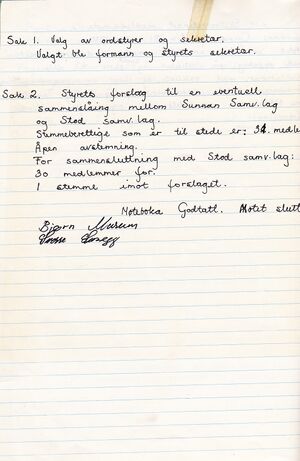 Sak 1. Valg av ordstyrer og sekretær.
Valgt ble formann og styrets sekretær.
Sak 2. Styrets forslag til en eventuell
sammenslåing mellom Sunnan Samv. lag
og Stod samv. lag.
Stemmeberettige som er til stede er: 31. medle
Åpen avstemning.
For sammenslutning med Stod samv. lag:
30 medlemmer for.
1 stemme imot forslaget.
Møteboka Godtatt. Møtet slutt
Bjørn